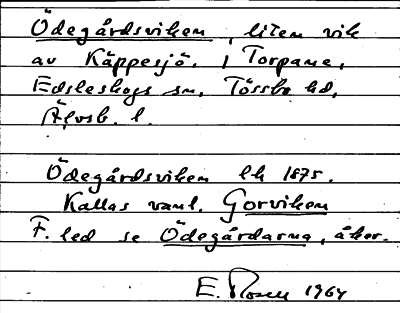 Ödegårdsviken, liten vik
av Käppesjö. / Torpane,
Edsleskogs sn, Tössbo hd,
Älvsb. l.
Ödegårdsviken lk 1875.
Kallas vanl. Gorviken
F. led se Ödegårdarna, åker.
E. Rosen 1964